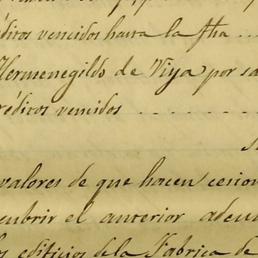 réditos vencidos hasta la fha ...
Hermenegildo de Viya por sa
réditos vencidos ..........
valores de que hacen cesion
cubrir el anterior adeu
los edificios de la Fabrica de